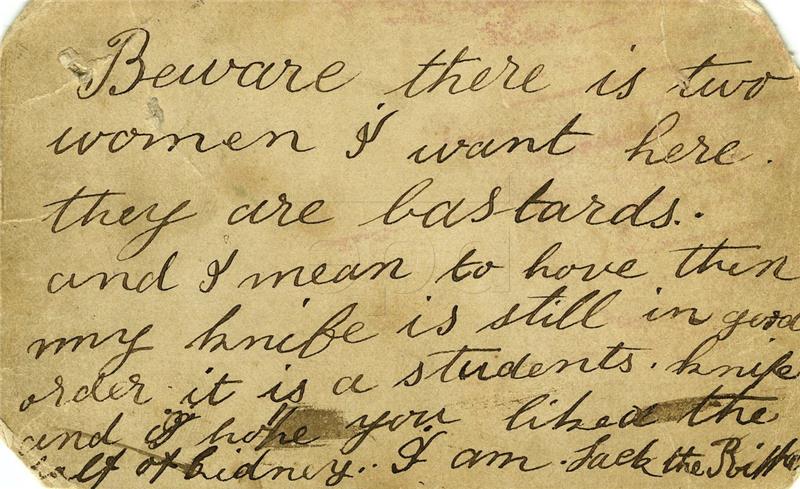 Beware there is two
women I want here.
they are bastards..
and I mean to hove then
my knife is still in good
order it is a students. knife
and I hope you liked the
half of kidney.. I am Jack the Ripper